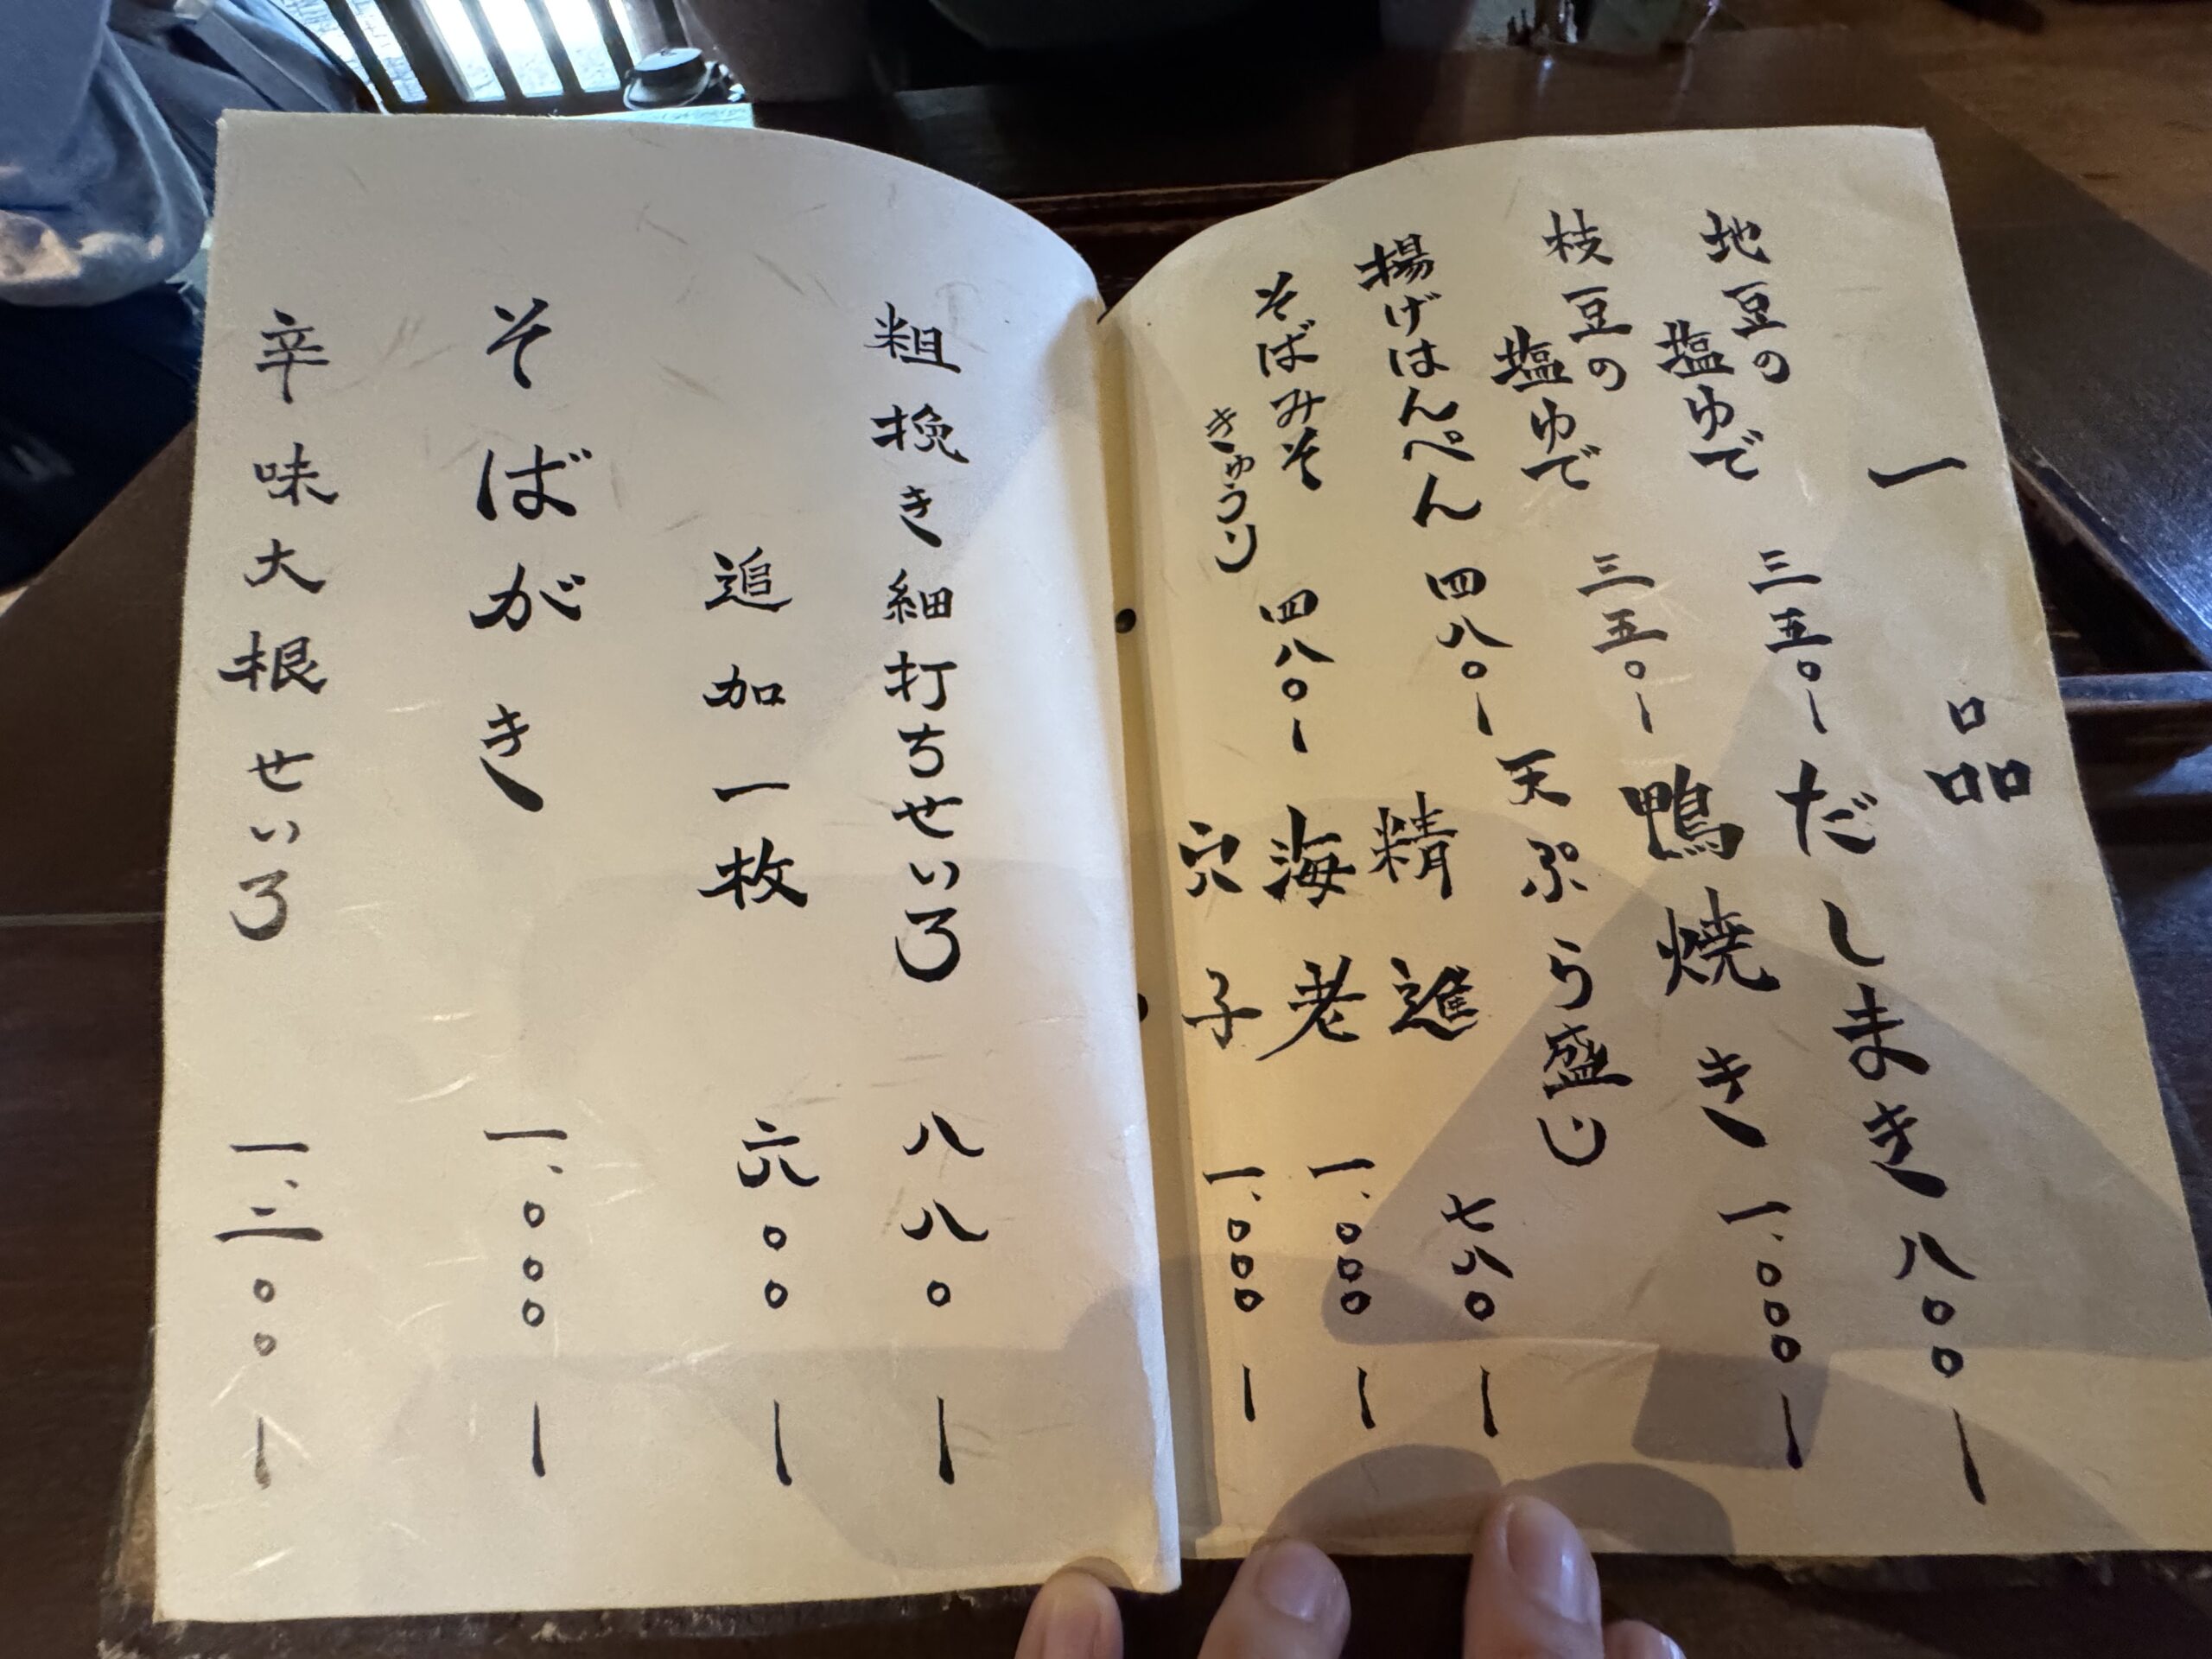 一品
だしまき 八〇〇ー
鴨焼き 一、〇〇〇ー
天ぷら盛り
精進 七八〇ー
海老 一、〇〇〇ー
穴子 一、〇〇〇ー
地豆の
塩ゆで 三五〇ー
枝豆の
塩ゆで 三五〇ー
揚げはんぺん 四八〇ー
そばみそ 四八〇ー
きゅうり
粗挽き細打ちせいろ 八八〇ー
追加一枚 六〇〇ー
そばがき 一、〇〇〇ー
辛味大根せいろ 一、二〇〇ー